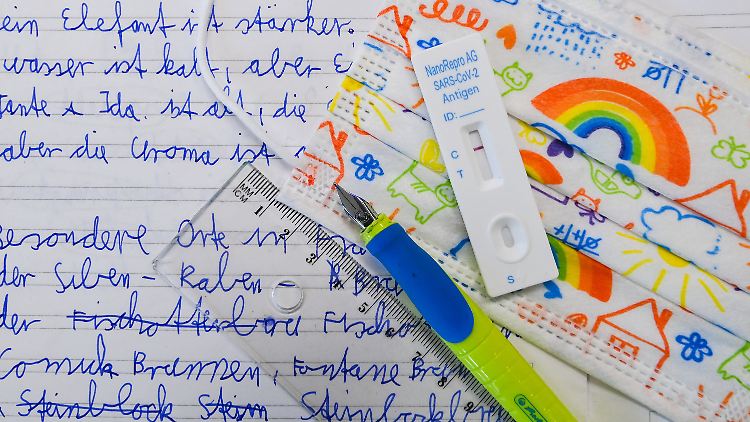 ein Elefant ist stärker.
wasser ist kalt, aber E
Ida. ist alt, die
aber die Uroma ist
Besondere Orte in
der Silben - Raben
der Fischotterbau Fischo
Brennen, Fontane Bre
Steinbock Stein Steinbock
NanoRepro AG
SARS-CoV-2
Antigen
ID:
C
T
S
MM
1CM
1
2
3
5
6
7
8
9